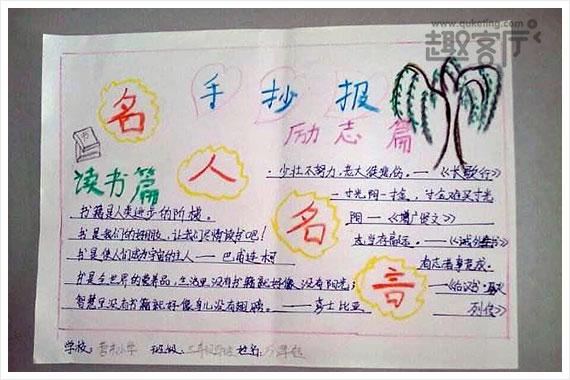 www.quketing.com
趣客厅
手抄报
名人名言
励志篇
读书篇
少壮不努力,老大徒悲伤。——《长歌行》
一寸光阴一寸金,寸金难买寸光
阴——《增广贤文》
志当存高远。——《诫外甥书》
有志者事竟成。
——《后汉书·
列传》
书籍是人类进步的阶梯。
书是我们的好朋友,让我们尽情读书吧!
书是使人们成为宇宙的主人——巴甫连柯
书是全世界的营养品,生活里没有书籍就好像没有阳光;
智慧里没有书籍就好像鸟儿没有翅膀。——莎士比亚
学校: 小学 班级: 姓名: